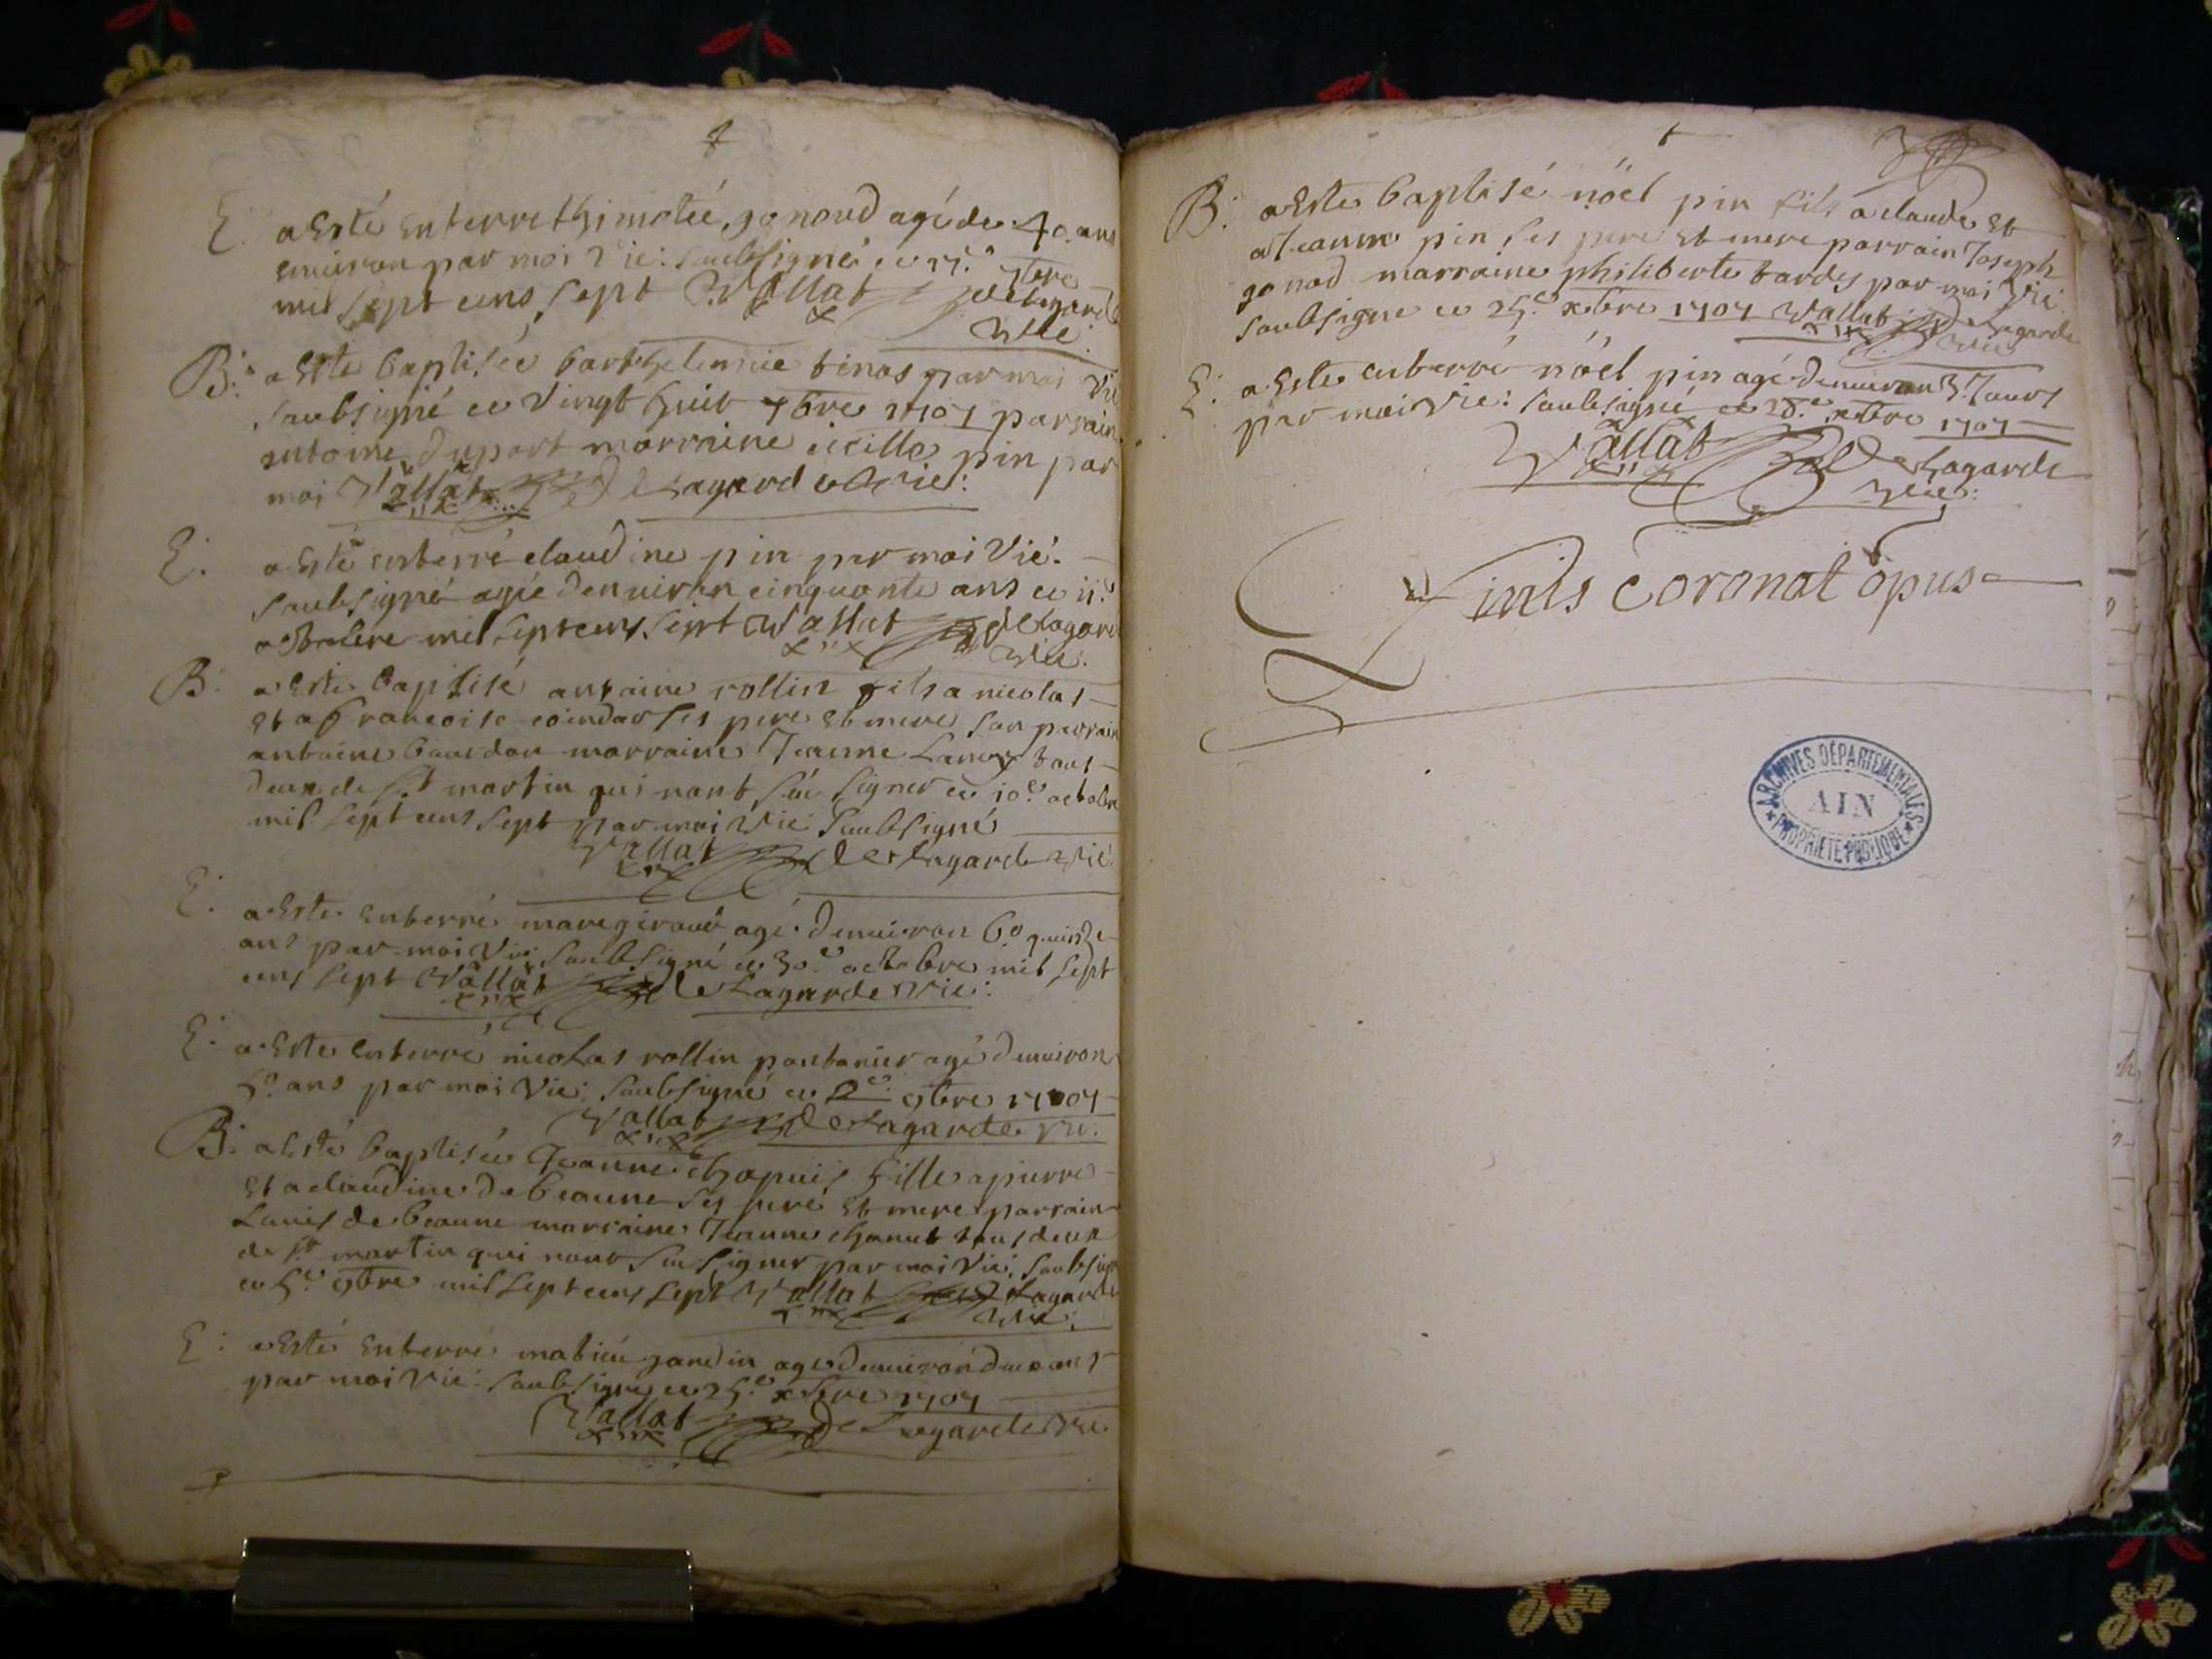 E. a Esté Enterre thimotée, gonoud agé de 40. ans
enuiron par moi Vic: soubsigné ce 17.e 7bre
mil sept cens sept Vallat delagarde
Vic:
B: a Esté baptisée barthelemie tinas par moi Vic
soubsigné ce vingt huit 7bre 1707 parrain
antoine duport marraine sicille pin par
moi Vallat DeLagarde Vic:
E. a Esté enterré claudine pin par moi Vic.
soubsigné agée denuiron cinquante ans ce 11.e
octobre mil sept cens sept Vallat deLagarde
Vic:
B. a Esté baptisé antoine rollin fils a nicolas
et a francoise coindar ses pere et mere son parrain
antoine bourdon marraine Jeanne Lancy tous
deux de St martin qui nont sceu signer ce 10.e octobre
mil sept cens sept par moi Vic soubsigné
Vallat de Lagarde Vic.
E. a Esté enterré marc giraud agé denuiron 60 quinze
ans par moi Vic soubsigné ce 30.e octobre mil sept
cens sept Vallat de Lagarde Vic:
E. a Esté enterré nicolas rollin pontanier agé denuiron
50 ans par moi Vic: soubsigné ce 2e. 9bre 1707
Vallat de Lagarde Vic:
B: a Esté baptisée Jeanne chapuis fille a pierre
et a claudine de beaune ses pere et mere parrain
Louis de beaune marraine Jeanne chanut tous deux
de St martin qui nont sceu signer par moi Vic: soubsigné
ce 5.e 9bre mil sept cens sept Vallat de Lagarde
Vic:
E: a Esté enterré matieu jardin agé denuiron deux ans
par moi Vic: soubsigné ce 25.e xbre 1707
Vallat de Lagarde Vic
B: a Esté baptisé nöel pin fils a claude et
a Jeanne pin ses pere et mere parrain Joseph
gonod marraine philiberte tardy par moi Vic:
soubsigne ce 25.e xbre 1707 Vallat de Lagarde
Vic
E: a Esté enterré nöel pin agé denuiron 3. Jours
par moi Vic: soubsigné ce 28.e xbre 1707
Vallat de Lagarde
Vic:
Finis coronat opus
ARCHIVES DÉPARTEMENTALES
AIN
PROPRIÉTÉ PUBLIQUE